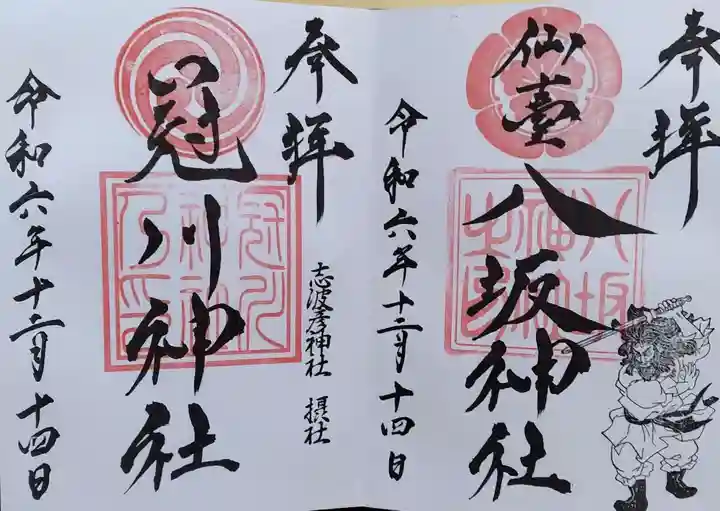 奉拝
仙臺八坂神社
八坂神社之印
令和六年十二月十四日
奉拝
志波彦神社 摂社
冠川神社
令和六年十二月十四日